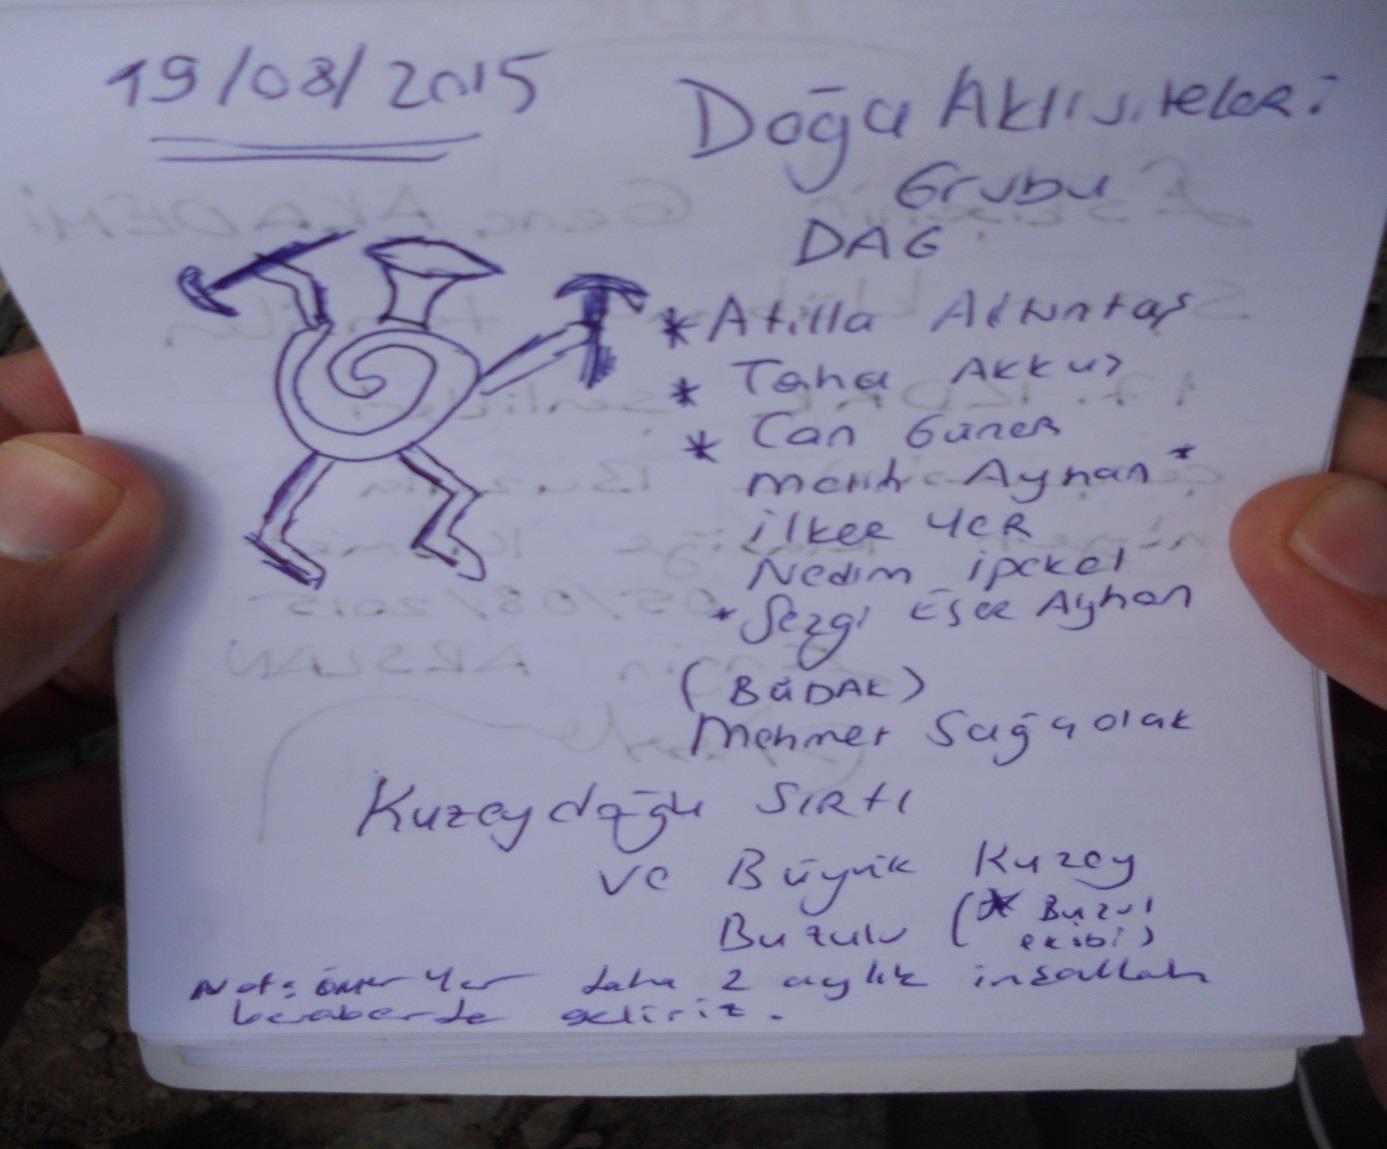 19/08/2015
Doğa Aktiviteleri
Grubu
DAG
* Atilla Altuntaş
* Taha Akkuş
* Can Güner
Melih Ayhan *
ilker YER
Nedim ipekel
* Sezgi Eşer Ayhan
(BÜDAK)
Mehmet Sağçolak
Kuzeydoğu SIRTI
ve Büyük Kuzey
Buzulu (* Buzul
ekibi)
Not: ömer Yer daha 2 aylık inşallah
beraberde geliriz.